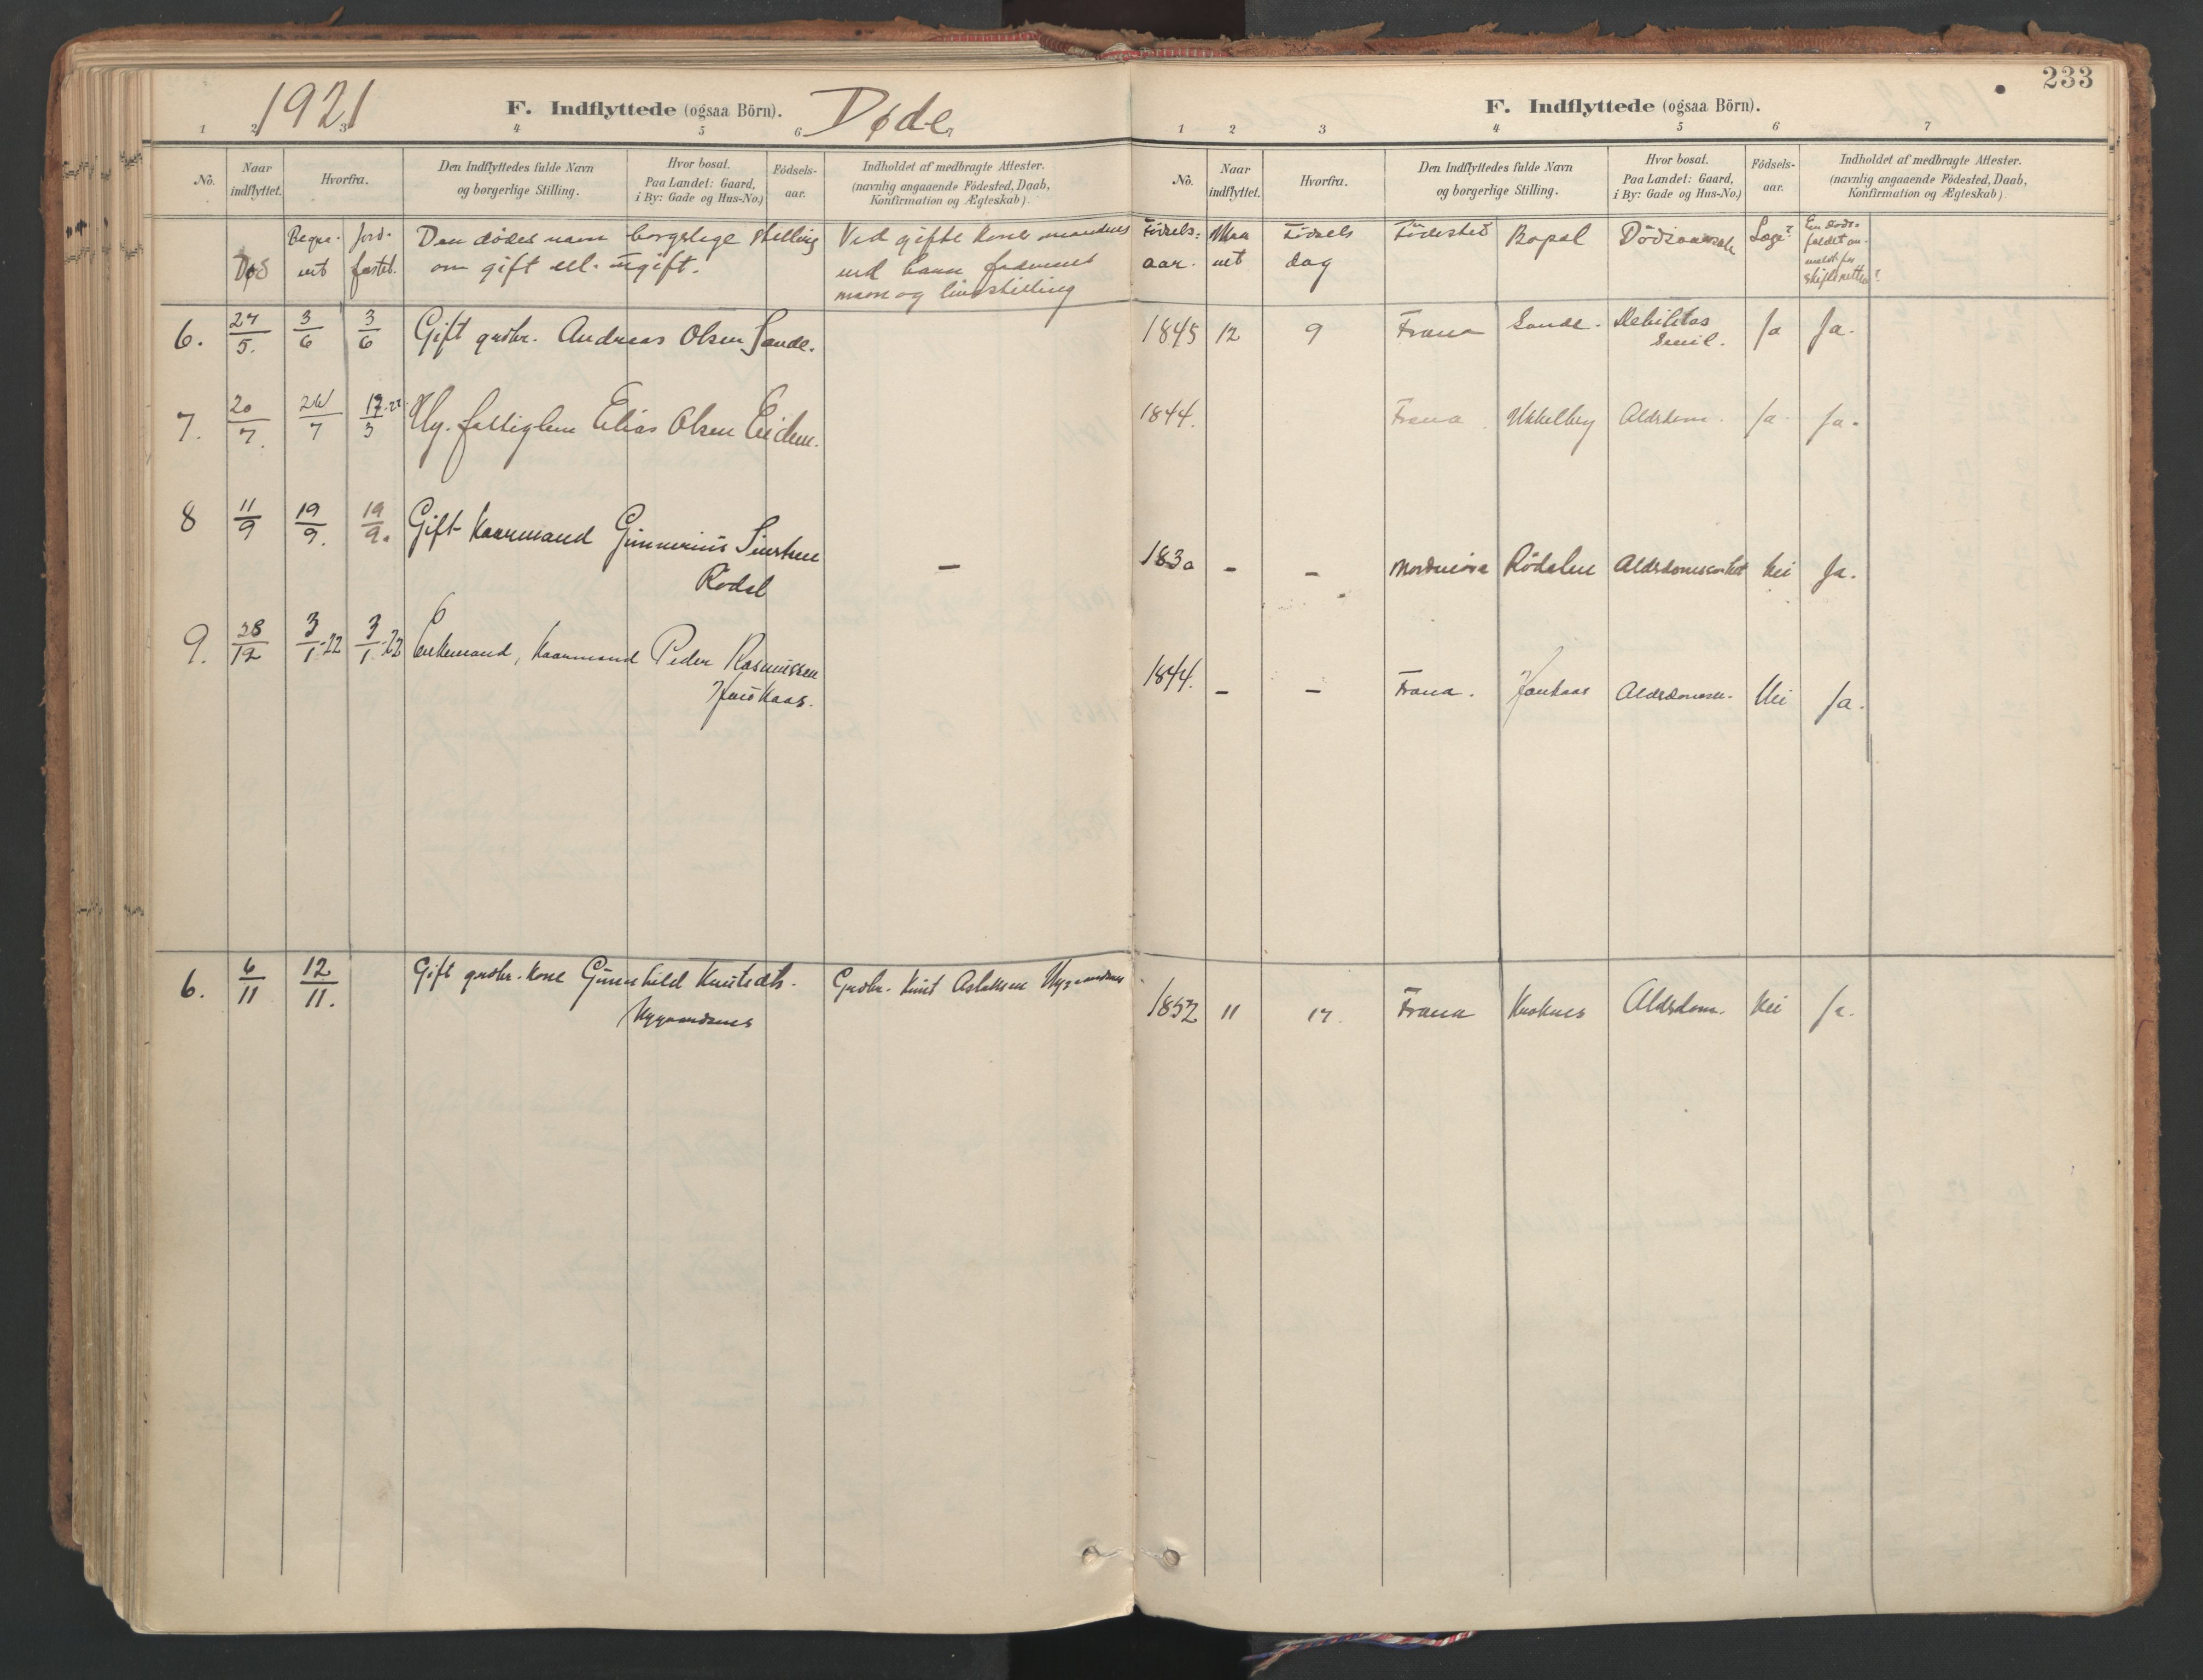 1921
F. Indflyttede (ogsaa Börn).
Døde
1 2 3 4 5 6 7
No.
Naar
indflyttet.
Hvorfra.
Den Indflyttedes fulde Navn
og borgerlige Stilling.
Hvor bosat.
Paa Landet: Gaard,
i By: Gade og Hus-No.)
Födsels-
aar.
Indholdet af medbragte Attester.
(navnlig angaaende Födested, Daab,
Konfirmation og Ægteskab)
Död
Begra-
vet
Jord-
fæstet.
Den dödes navn borgelige Stilling
om gift ell. ugift.
Ved gifte koner mandens
ved barn faderens
navn og livsstilling
6. 27/5. 3/6 3/6 Gift grdbr. Andreas Olsen Sande.
7. 20/7. 24/7 17/3-22 Ug. fattiglem Elias Olsen Eidem.
8 11/9 19/9. 19/9. Gift Kaarmand Gunnerius Sivertsen
Rödal
-
9. 28/12 3/1-22 3/1-22 Enkemand, Kaarmand Peder Rasmussen
Julshaas.
6. 6/11 12/11. Gift grdbr. Kone Gunnhild Knutsdtr. Grdbr. Knut Aslaksen
233
F. Indflyttede (ogsaa Börn).
1 2 3 4 5 6 7
No.
Naar
indflyttet.
Hvorfra.
Den Indflyttedes fulde Navn
og borgerlige Stilling.
Hvor bosat.
Paa Landet: Gaard,
i By: Gade og Hus-No.)
Födsels-
aar.
Indholdet af medbragte Attester.
(navnlig angaaende Födested, Daab,
Konfirmation og Ægteskab)
Födsels-
aar.
Maa
net
Födsels
dag
Födested
Bopæl
Dödsaarsak
Læge?
Er döds-
faldet an-
meldt for
skifteretten?
1845 12 9 Fræna Sande. Debilitas
Senil. Ja Ja.
1844. Fræna Ukkelberg Alderdom. Ja Ja.
1830 - - Nordmöre Rödalen Alderdomssvakhet Nei Ja.
1844. - - Fræna. Alderdomssv. Nei Ja.
1852 11 17. Fræna Alderdom. Nei Ja.